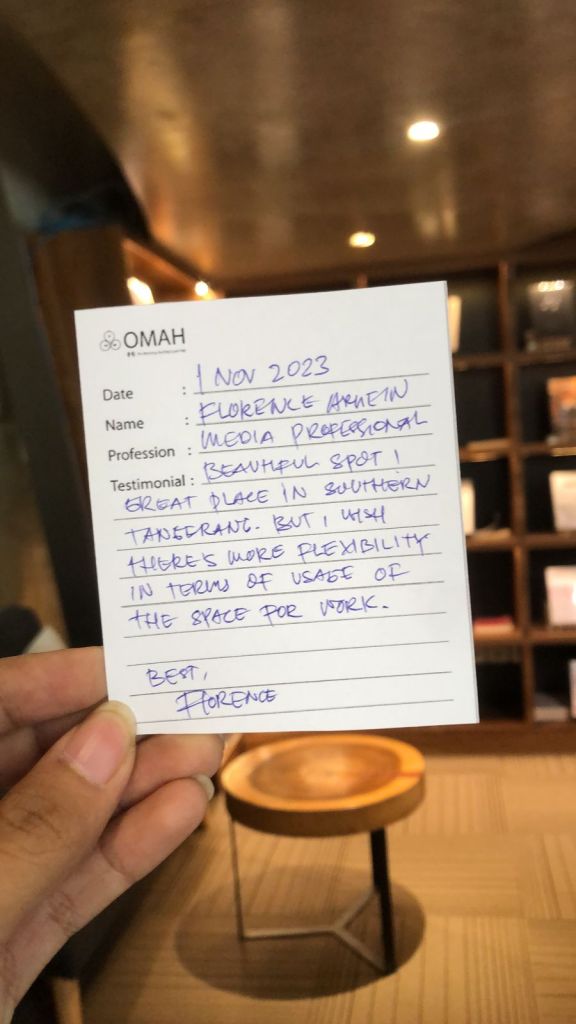 OMAH
Date : 1 NOV 2023
Name : FLORENCE ARMEIN
Profession : MEDIA PROFESSIONAL
Testimonial : BEAUTIFUL SPOT!
GREAT PLACE IN SOUTHERN
TANGERANG. BUT I WISH
THERE'S MORE FLEXIBILITY
IN TERMS OF USAGE OF
THE SPACE FOR WORK.
BEST,
FLORENCE